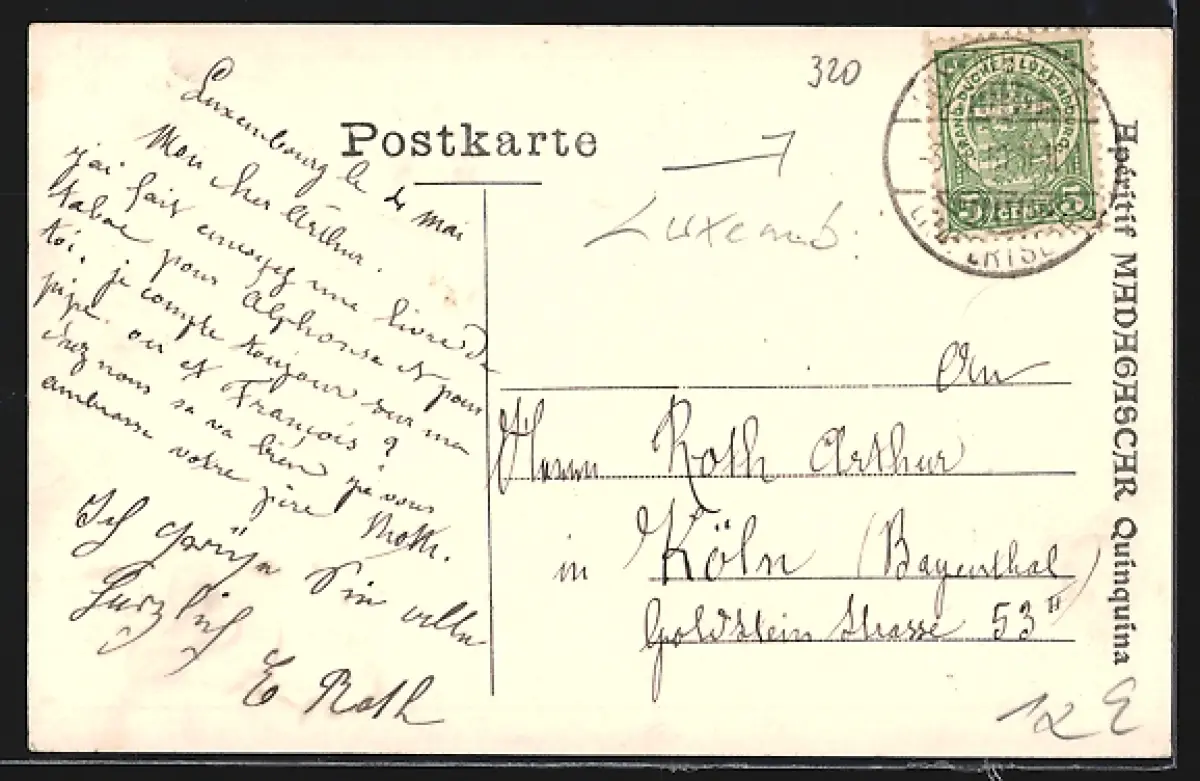 320
Postkarte
Luxemb.
GRAND-DUCHÉ DE LUXEMBOURG
5 CENT. 5
Apéritif MADAGASCAR Quinquina
Luxembourg le 4 mai
Mon cher Arthur.
j'ai fait envoyez une livre de
tabac pour Alphonse et pour
toi. je compte toujour sur ma
pipe. ou et François ?
chez nous sa va bien je vous
embrasse votre père Roth.
Ich grüße alle
Herzlich
E Roth
An
Herrn Roth Arthur
in Köln (Bayenthal)
Goldstein Strasse 53 II
12 E